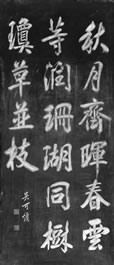 秋月齊暉春雲
等潤珊瑚同樹
瓊草並枝